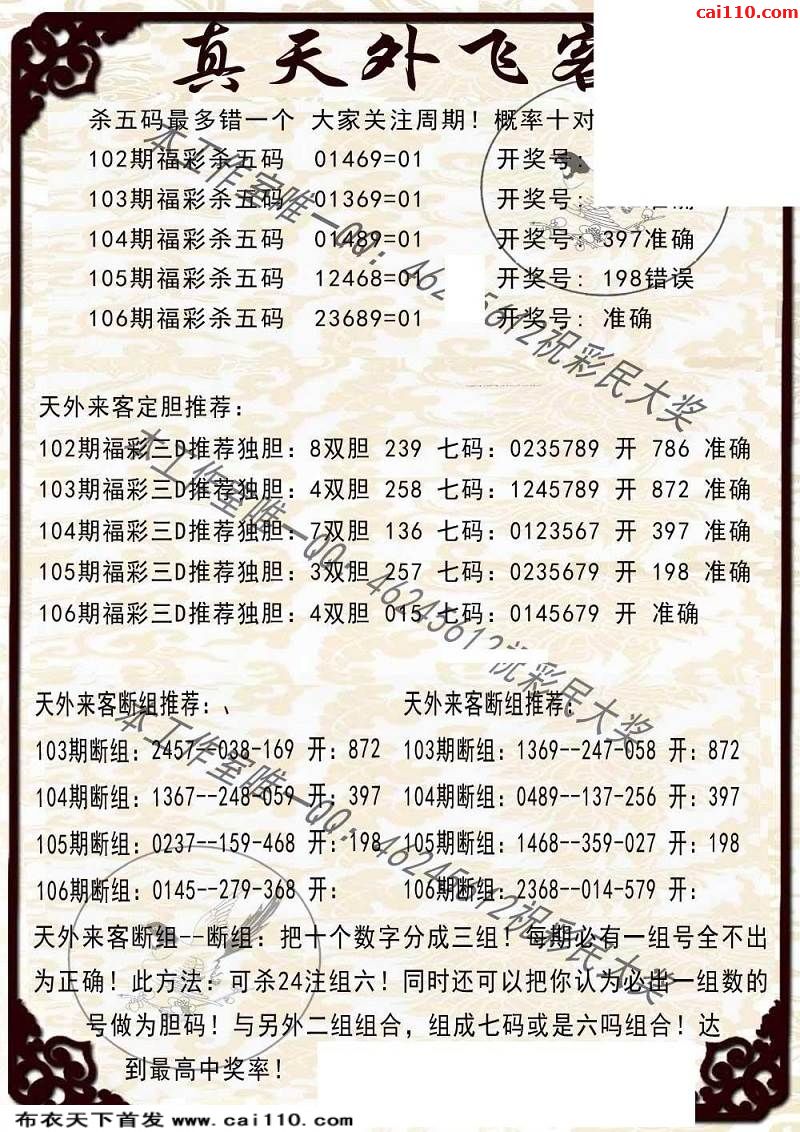 cai110.com
真天外飞客
杀五码最多错一个 大家关注周期！概率十对
102期福彩杀五码 01469=01 开奖号：
103期福彩杀五码 01369=01 开奖号：
104期福彩杀五码 01489=01 开奖号：397准确
105期福彩杀五码 12468=01 开奖号：198错误
106期福彩杀五码 23689=01 开奖号：准确
天外来客定胆推荐：
102期福彩三D推荐独胆：8双胆 239 七码：0235789 开 786 准确
103期福彩三D推荐独胆：4双胆 258 七码：1245789 开 872 准确
104期福彩三D推荐独胆：7双胆 136 七码：0123567 开 397 准确
105期福彩三D推荐独胆：3双胆 257 七码：0235679 开 198 准确
106期福彩三D推荐独胆：4双胆 015 七码：0145679 开 准确
天外来客断组推荐：、
103期断组：2457--038-169 开：872
104期断组：1367--248-059 开：397
105期断组：0237--159-468 开：198
106期断组：0145--279-368 开：
天外来客断组推荐：
103期断组：1369--247-058 开：872
104期断组：0489--137-256 开：397
105期断组：1468--359-027 开：198
106期断组：2368--014-579 开：
天外来客断组--断组：把十个数字分成三组！每期必有一组号全不出
为正确！此方法：可杀24注组六！同时还可以把你认为必出一组数的
号做为胆码！与另外二组组合，组成七码或是六吗组合！达
到最高中奖率！
本工作室唯一QQ：46245612祝彩民大奖
本工作室唯一QQ：46245612祝彩民大奖
本工作室唯一QQ：46245612祝彩民大奖
布衣天下首发 www.cai110.com